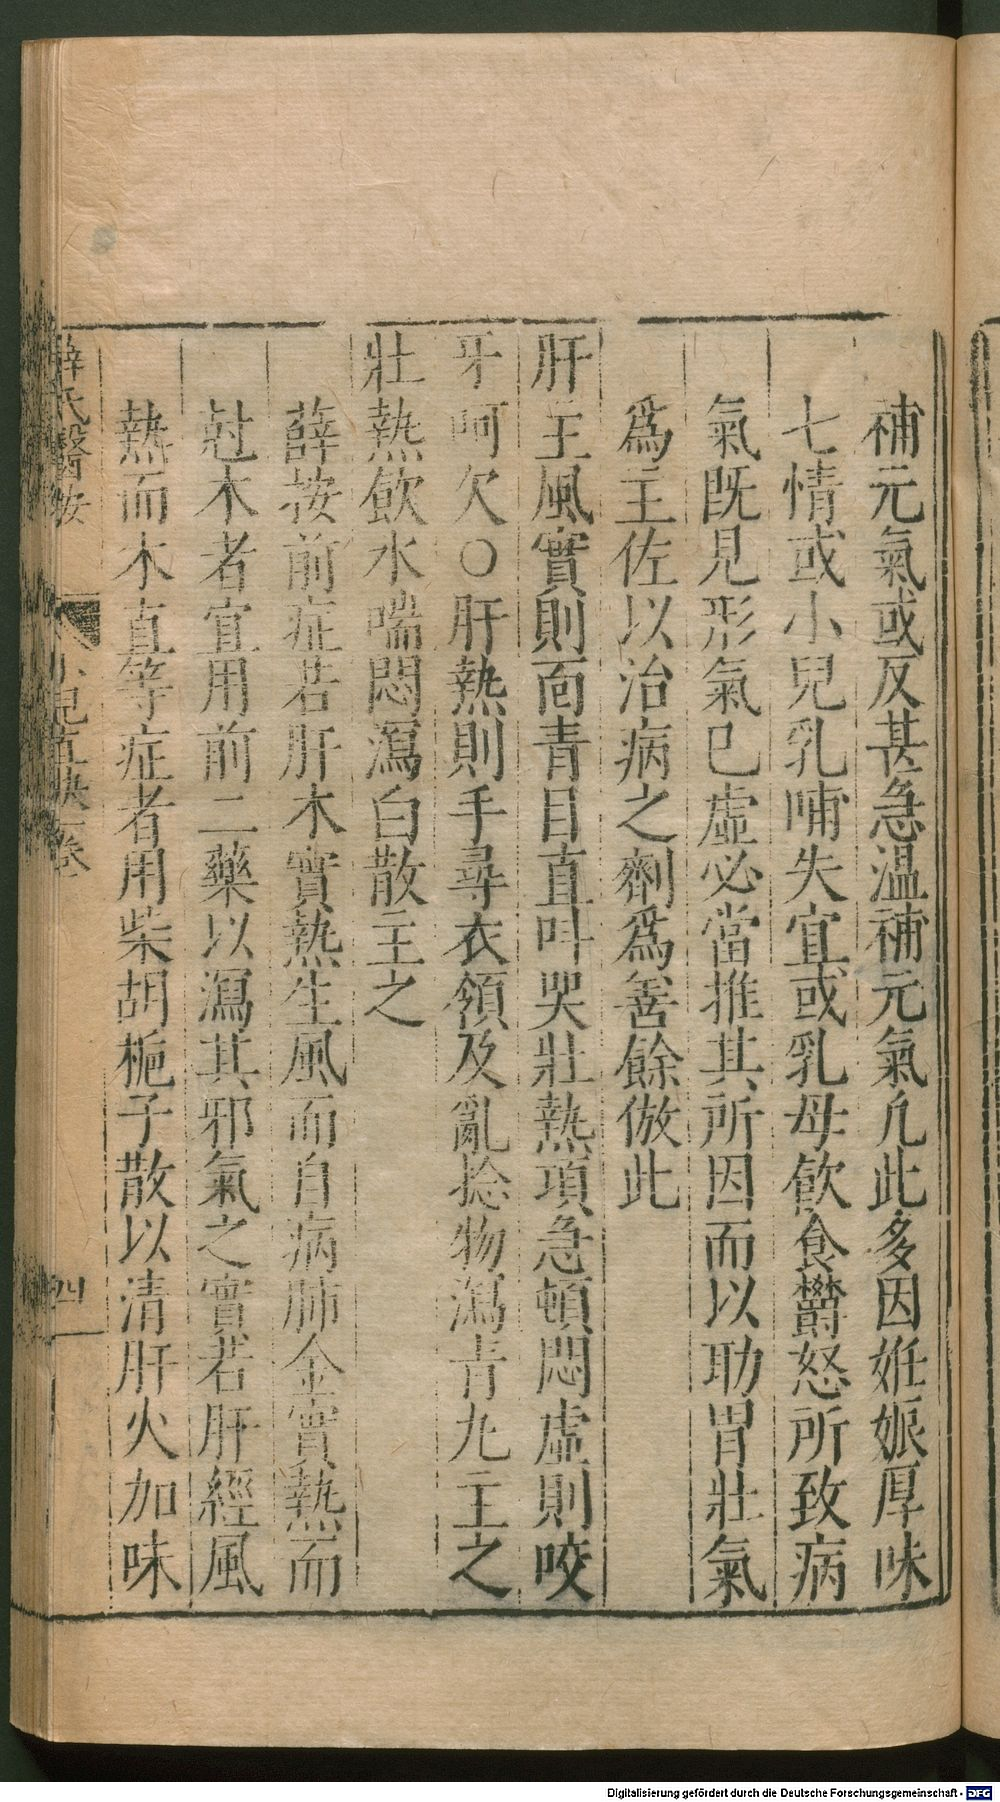 補元氣或反甚急温補元氣凡此多因姙娠厚味
七情或小兒乳哺失宜或乳母飲食欝怒所致病
氣既見形氣已虛必當推其所因而以助胃壯氣
爲主佐以治病之劑爲善餘倣此
肝主風實則面青目直呌哭壯熱項急頓悶虛則咬
牙呵欠○肝熱則手尋衣領及亂捻物瀉青丸主之
壯熱飲水喘悶瀉白散主之
薛按前症若肝木實熱生風而自病肺金實熱而
尅木者宜用前二藥以瀉其邪氣之實若肝經風
熱而木直等症者用柴胡梔子散以清肝火加味
薛氏醫按
小兒直訣卷一
四
Digitalisierung gefördert durch die Deutsche Forschungsgemeinschaft - DFG